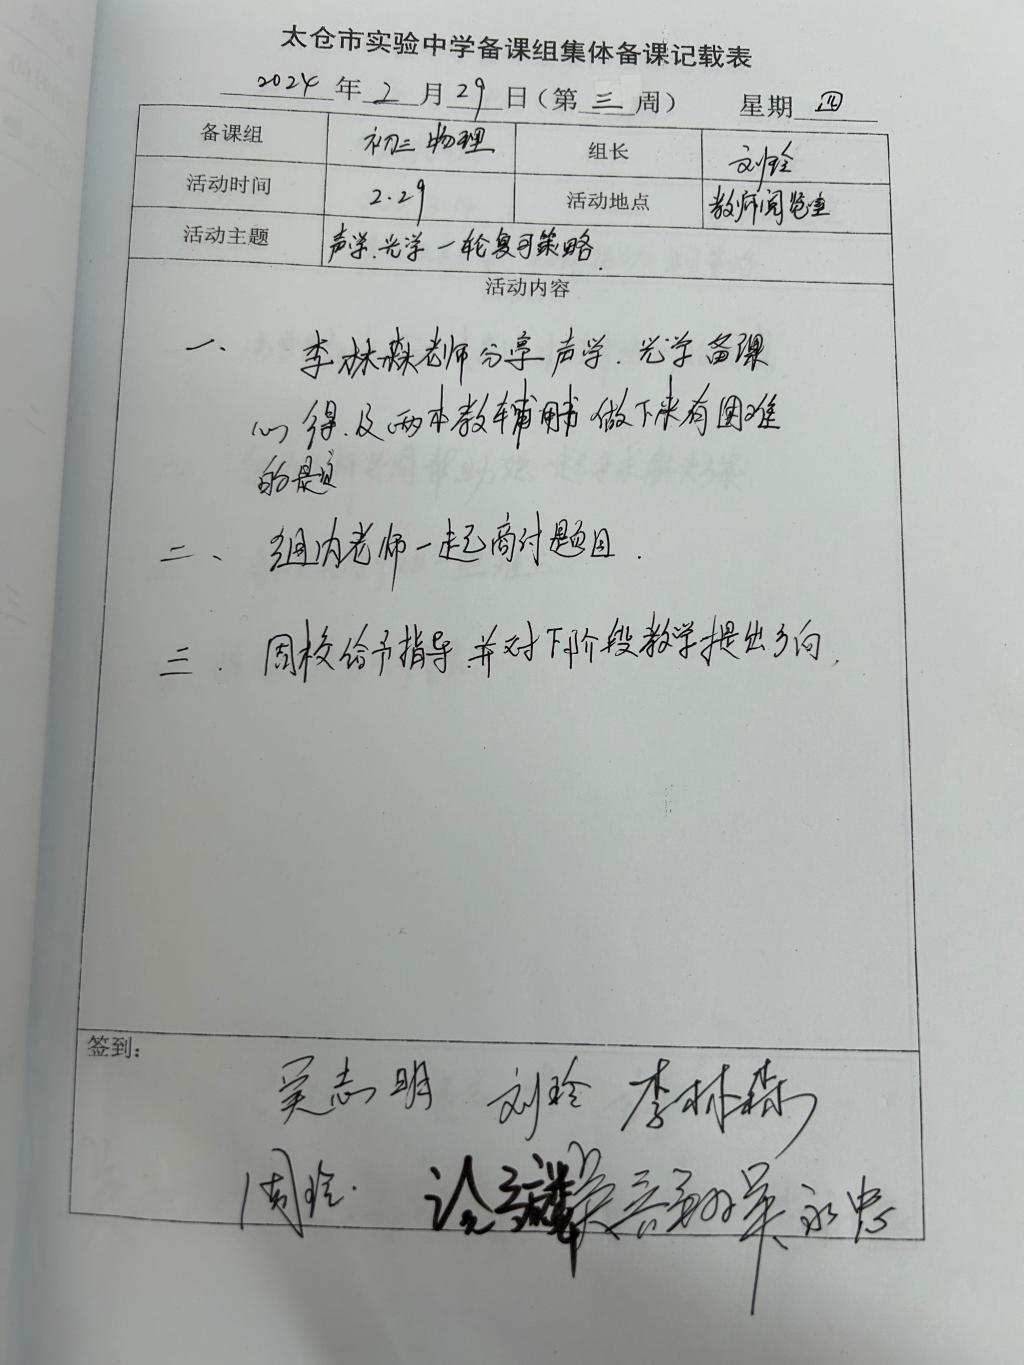 太仓市实验中学备课组集体备课记载表
2024年2月29日（第三周） 星期四
备课组 初三物理 组长 刘玲
活动时间 2.29 活动地点 教师阅览室
活动主题 声学.光学一轮复习策略.
活动内容
一、 李林森老师分享声学.光学备课
心得.及两本教辅用书做下来有困难
的题
二、 组内老师一起商讨题目.
三. 周校给予指导.并对下阶段教学提出方向.
签到:
吴志明 刘玲 李林森
周玲. 吴永忠